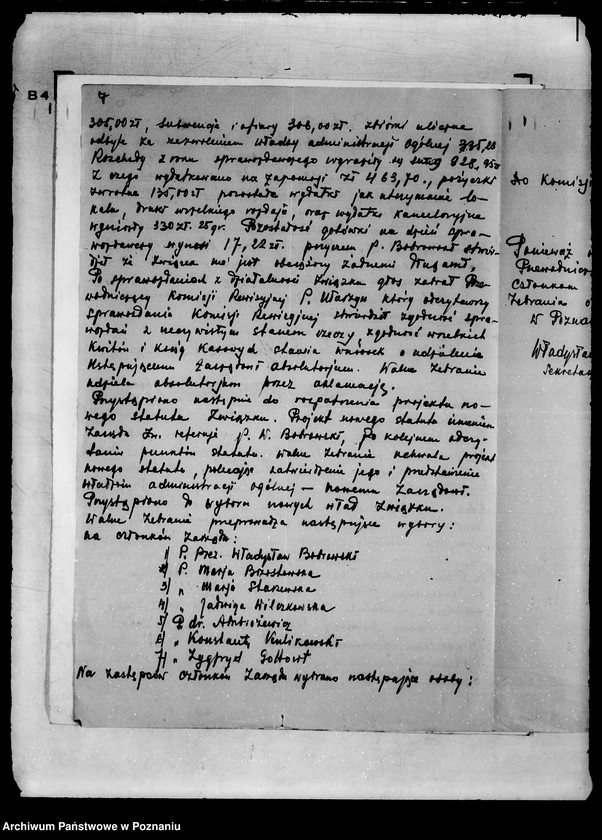 B4
7
305,00 zł, subwencje i ofiary 308,00 zł. zbiórki uliczne
odbyte za zezwoleniem władzy administracji ogólnej 335,
Rozchody z roku sprawozdawczego wynoszą zł 928,95
Z czego wydatkowano na zapomogi zł 463,70., pożyczki
zwrotne 135,00 zł pozostałe wydatki jak utrzymanie lo-
kalu, druki wszelkiego rodzaju, oraz wydatki kancelaryjne
wyniosły 330 zł. 25 gr. Pozostałość gotówki na dzień spra-
wozdawczy wynosi 17,22 zł. przyczem P. Bobrowski stwier-
dził że Związek nie jest obciążony żadnemi długami,
Po sprawozdaniach z działalności Związku głos zabrał Prze-
wodniczący Komisji Rewizyjnej P. Warzyn który odczytawszy
sprawozdanie Komisji Rewizyjnej stwierdził zgodność spra-
wozdań z rzeczywistym stanem rzeczy, zgodność wszelkich
kwitów i ksiąg kasowych stawia wniosek o udzielenie
ustępującemu Zarządowi absolutorjum. Walne Zebranie
udziela absolutorjum przez aklamację.
Przystąpiono następnie do rozpatrzenia projektu no-
wego statutu Związku. Projekt nowego statutu imieniem
Zarządu Zw. referuje P. W. Bobrowski, po kolejnem odczy-
taniu punktów statutu. Walne Zebranie uchwala projekt
nowego statutu, polecając zatwierdzenie jego i przedstawienie
władzom administracji ogólnej – nowemu Zarządowi.
Przystąpiono do wyboru nowych władz Związku.
Walne Zebranie przeprowadza następujące wybory:
na członków Zarządu:
1/ P. Prez. Władysław Bobrowski
2/ P. Marja Brzostowska
3/ „ Marja Stakewska
4/ „ Jadwiga Wilczkowska
5/ P dr. Ambrożewicz
6/ „ Konstanty Kulikowski
7/ „ Zygfryd Gottowt
Na zastępców członków Zarządu wybrano następujące osoby:
Do Komisji
Ponieważ
Przewodnicz
członkom
Zebrania o
W Pozna
Władysła
Sekreta
Archiwum Państwowe w Poznaniu